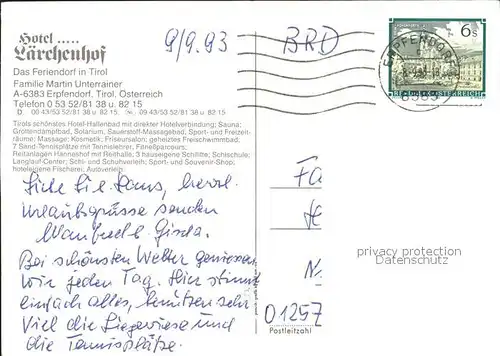 Hotel .....
Lärchenhof
Das Feriendorf in Tirol
Familie Martin Unterrainer
A-6383 Erpfendorf, Tirol, Österreich
Telefon 0 53 52/81 38 u. 82 15
D 00 43/53 52/81 38 u. 82 15 09 43/53 52/81 38 u. 82 15
Tirols schönstes Hotel-Hallenbad mit direkter Hotelverbindung; Sauna;
Großdampfbad, Solarium, Sauerstoff-Massagebad, Sport- und Freizeit-
räume; Massage; Kosmetik; Friseursalon; geheiztes Freischwimmbad;
7 Sand-Tennisplätze mit Tennislehrer, Fitneßparcours;
Reitanlagen Hannashof mit Reithalle, 3 hauseigene Schilifte; Schischule;
Langlauf-Center; Schi- und Schuhverleih; Sport- und Souvenir-Shop;
hoteleigene Fischerei; Autoverleih
9/9.93
BRD
6s
REPUBLIK ÖSTERREICH
ERPFENDORF
6383
Liebe
herzl.
Urlaubsgrüsse senden
Manfred u. Gisela.
Bei schönsten Wetter geniessen
wir jeden Tag. Hier stimmt
einfach alles, benützen sehr
viel die Liegewiese und
die Tennisplätze.
01257
Postleitzahl
privacy protection
Datenschutz